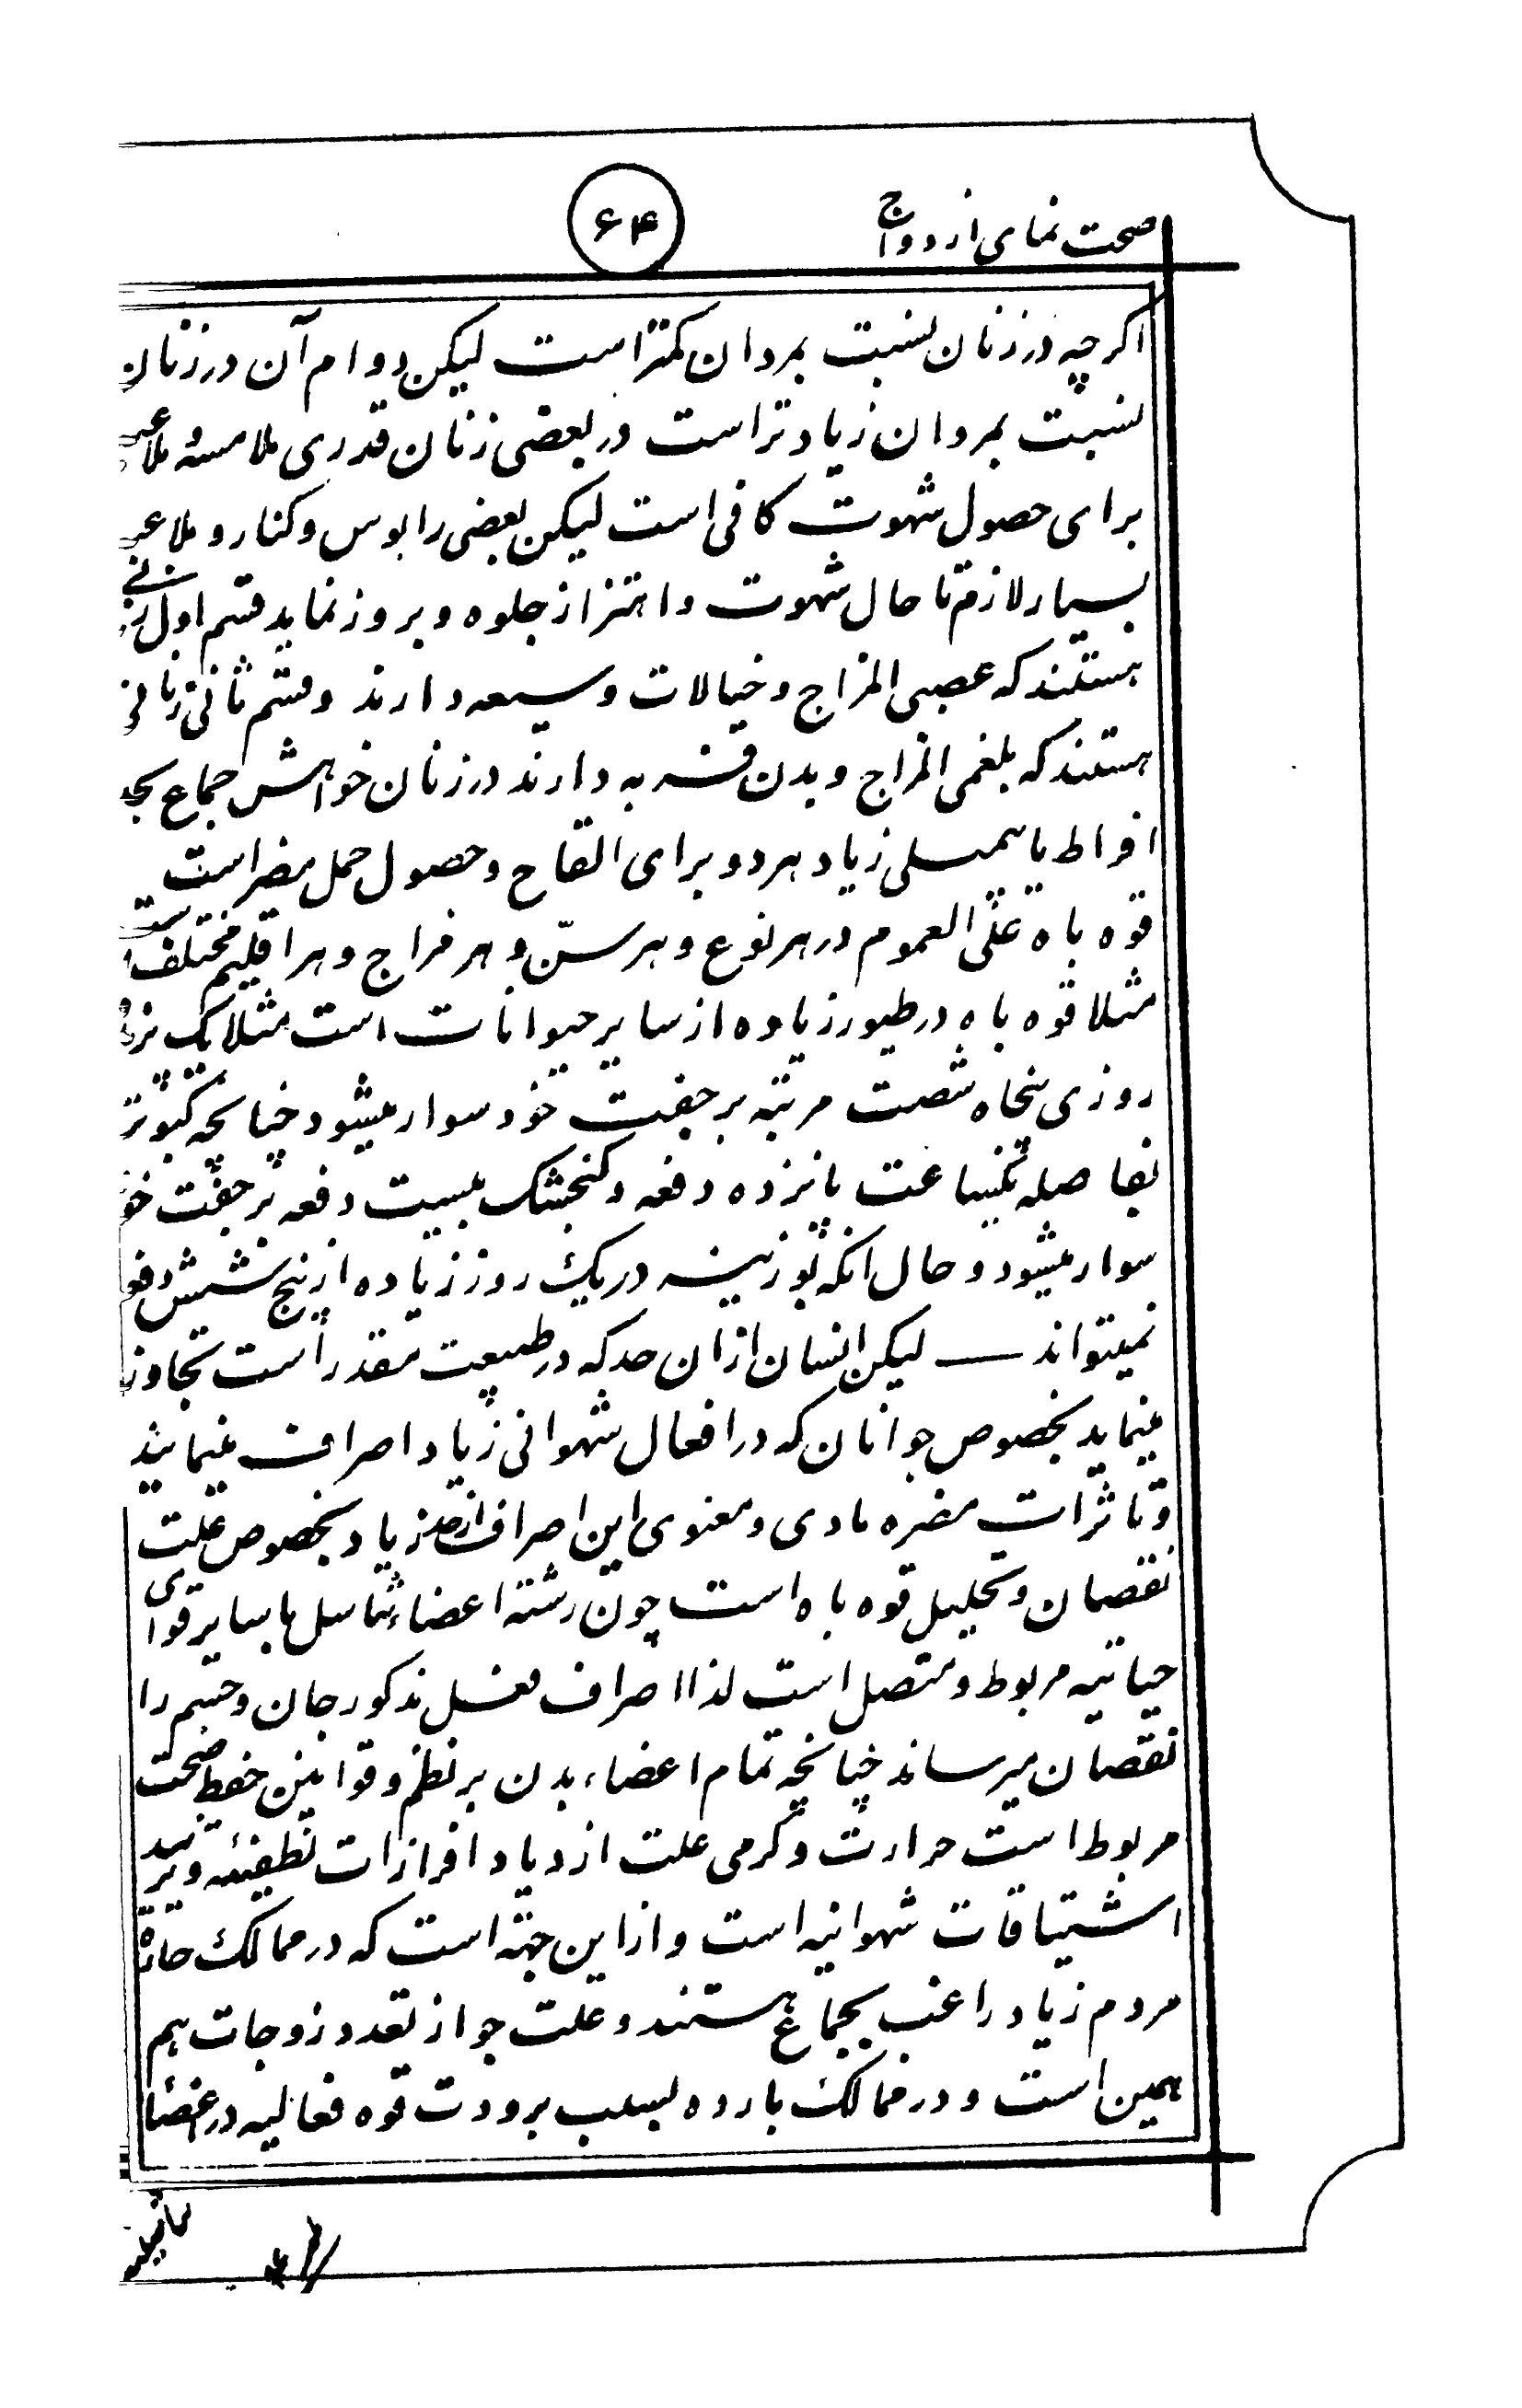 صحت نمای ازدواج
۶۴
اگرچه در زنان نسبت بمردان کمتر است لیکن دوام آن در زنان
نسبت بمردان زیادتر است در بعضی زنان قدری ملامسه و ملاعبه
برای حصول شهوت کافی است لیکن بعضی را بوس و کنار و ملاعبه
بسیار لازم تا حال شهوت و اهتزاز جلوه و بروز نماید قسم اول زنانی
هستند که عصبی المزاج و خیالات وسیعه دارند و قسم ثانی زنانی
هستند که بلغمی المزاج و بدن فربه دارند در زنان خواهش جماع بحد
افراط یا بیمیلی زیاد هر دو برای القاح و حصول حمل مضر است
قوه باه علی العموم در هر نوع و هر سنّ و هر مزاج و هر اقلیم مختلف است
مثلا قوه باه در طیور زیاده از سایر حیوانات است مثلا یک
روزی پنجاه شصت مرتبه بر جفت خود سوار میشود چنانچه کبوتر
بفاصله یکساعت پانزده دفعه و گنجشک بیست دفعه بر جفت خود
سوار میشود و حال انکه بوزینه در یک روز زیاده از پنج شیش دفعه
نمیتواند لیکن انسان از ان حد که در طبیعت مقدر است تجاوز
مینماید بخصوص جوانان که در افعال شهوانی زیاد اصراف مینمایند
و تاثرات مضره مادی و معنوی این اصراف از حد زیاد بخصوص علت
نقصان و تحلیل قوه باه است چون رشته اعضاء تناسل با سایر قوای
حیاتیه مربوط و متصل است لذا اصراف فعل مذکور جان و جسم را
نقصان میرساند چنانچه تمام اعضاء بدن بر نظم و قوانین حفظ صحت
مربوط است حرارت و گرمی علت ازدیاد افرازات نطفیئه و تزید
اشتیاقات شهوانیه است و از این جهته است که در ممالک حاره
مردم زیاد راغب بجماع هستند و علت جواز تعدد زوجات هم
همین است و در ممالک بارده بسبب برودت قوه فعالیه در اعضا